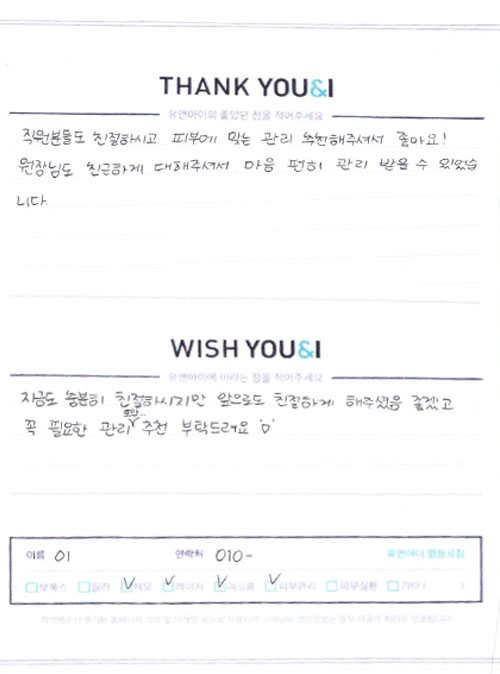 THANK YOU&I
유앤아이의 좋았던 점을 적어주세요
직원분들도 친절하시고 피부에 맞는 관리 추천해주셔서 좋아요!
원장님도 친근하게 대해주셔서 마음 편히 관리 받을 수 있었습
니다
WISH YOU&I
유앤아이에 바라는 점을 적어주세요
지금도 충분히 친절하시지만 앞으로도 친절하게 해주셨음 좋겠고
꼭 필요한 관리 추천 부탁드려요 'ㅁ'
이름 이 연락처 010- 유앤아이 영등포점
보톡스 필러 제모 레이저 여드름 피부관리 피부질환 기타 ( )